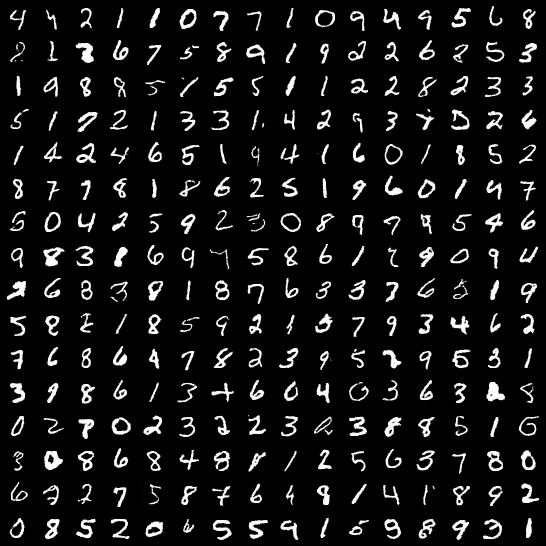 4 4 2 1 1 0 7 7 1 0 9 4 9 5 6 8
2 1 3 6 7 5 8 9 1 9 2 2 6 8 5 3
1 9 8 8 5 1 5 5 1 1 2 2 8 2 3 3
5 1 7 2 1 3 3 1 4 2 9 3 7 5 2 6
1 4 2 4 6 5 1 9 4 1 6 0 1 8 5 2
8 7 9 8 1 8 6 2 5 1 9 6 0 1 4 7
5 0 4 2 5 9 2 3 0 8 9 7 9 5 4 6
9 8 3 1 6 9 7 5 8 6 1 7 9 0 9 4
2 6 8 3 8 1 8 7 6 3 3 7 6 5 1 9
5 8 2 1 8 5 9 2 1 5 7 9 3 4 6 2
7 6 8 6 4 7 8 2 3 9 5 2 9 5 3 1
3 9 8 6 1 3 4 6 0 4 0 3 6 3 2 8
0 2 7 0 2 3 2 2 3 2 3 8 8 5 1 0
3 0 8 6 8 4 8 1 1 2 5 6 3 7 8 0
6 2 2 7 5 8 7 6 4 9 1 4 1 8 9 2
0 8 5 2 0 6 5 5 9 1 5 9 8 9 3 1